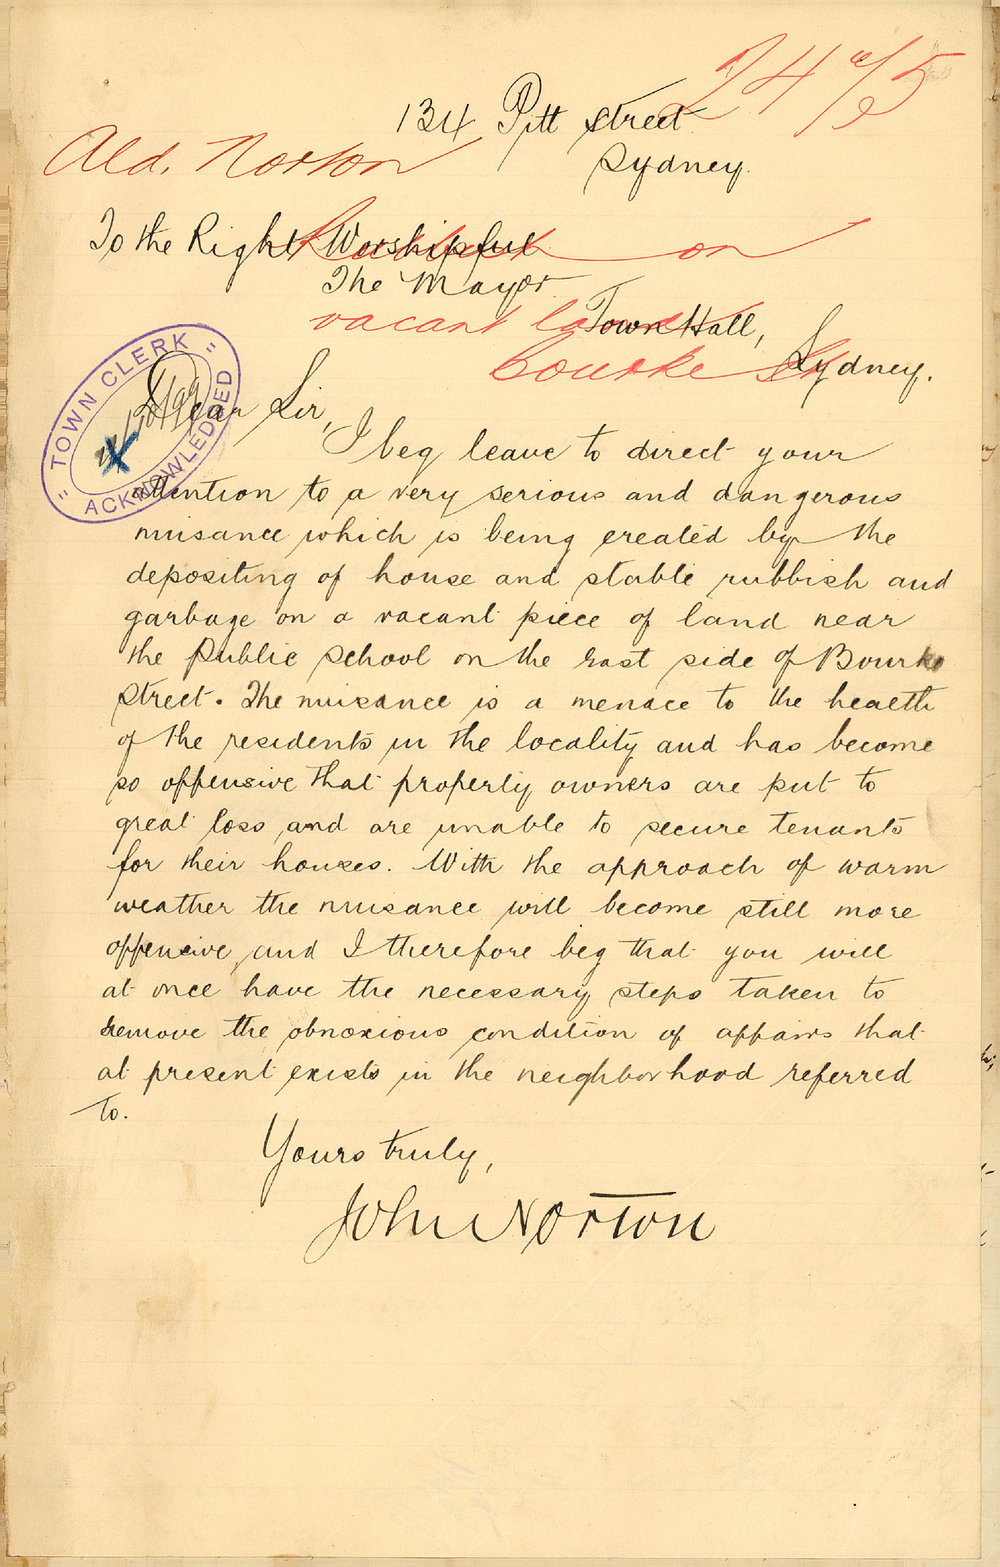 134 Pitt Street
Sydney.
Ald. Norton
To the Right Worshipful
Rubbish on
The Mayor
vacant land
Town Hall,
Bourke St
Sydney.
"TOWN CLERK"
ACKNOWLEDGED
Dear Sir,
I beg leave to direct your
attention to a very serious and dangerous
nuisance which is being created by the
depositing of house and stable rubbish and
garbage on a vacant piece of land near
the Public School on the East side of Bourke
Street. The nuisance is a menace to the health
of the residents in the locality and has become
so offensive that property owners are put to
great loss and are unable to secure tenants
for their houses. With the approach of warm
weather the nuisance will become still more
offensive, and I therefore beg that you will
at once have the necessary steps taken to
remove the obnoxious condition of affairs that
at present exists in the neighborhood referred
to.
Yours truly,
John Norton